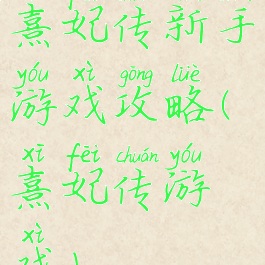 熹妃传新手
yóu xì gōng lüè
游戏攻略(
xī fēi chuán yóu
熹妃传游
xì
戏)